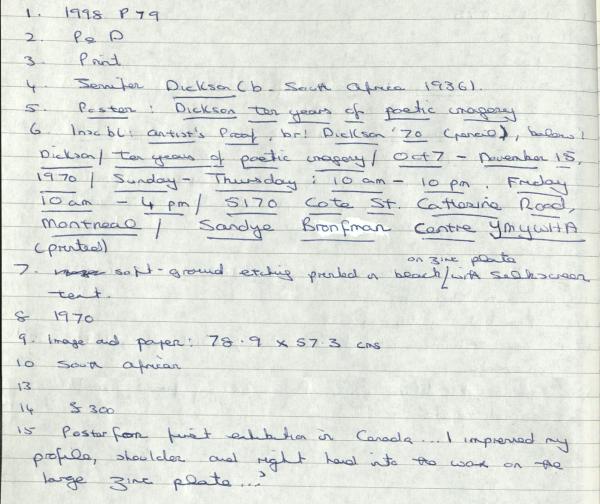 1. 1998 P 79
2. P & D
3. Print
4. Jennifer Dickson (b. South Africa 1936).
5. Poster : Dickson ten years of poetic imagery
6. Inscbl: artist's Proof, br: Dickson '70 (pencil), below:
Dickson/ ten years of poetic imagery / Oct 7 - November 15,
1970 / Sunday - Thursday : 10 am - 10 pm. Friday
10 am - 4 pm / 5170 Cote St. Catherine Road,
Montreal / Sandye Bronfman Centre YMYWHA
(printed)
on zinc plate
7. soft-ground etching printed in / with silkscreen
text.
8 1970
9. Image and paper: 78.9 x 57.3 cms
10 South African
13
14 $ 300
15 Poster from first exhibition in Canada... I impressed my
profile, shoulder and right hand into the wax on the
large zinc plate...'